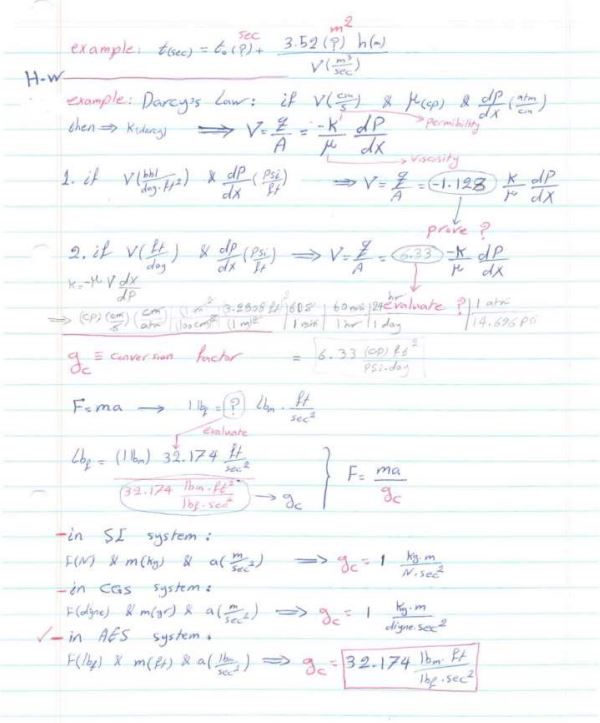 example: t(sec) = t₀(?) + sec 3.52(?) m² h(m) / V(m³/sec)
H-w
example: Darcy's Law: if V(cm/s) & μ(cp) & dP/dx (atm/cm)
then => K(darcy) ⟹ V = q/A = -K/μ dP/dx → permibility
→ viscosity
1. if V(bbl/day.ft²) & dP/dx (psi/ft) ⟹ V = q/A = -1.128 K/μ dP/dx
prove ?
2. if V(ft/day) & dP/dx (psi/ft) ⟹ V = q/A = 6.33 -K/μ dP/dx
K = -μ V dx/dP
evaluate ?
⟹ (cp) (cm/s) (cm/atm) | 1 m² / (100cm)² | 3.2808 ft² / (1 m)² | 60 s / 1 min | 60 min / 1 hr | 24 hr / 1 day | 1 atm / 14.696 psi
gc ≡ conversion factor = 6.33 (cp) ft² / psi.day
F = ma → 1 lbf = ? lbm . ft/sec²
evaluate
lbf = (1 lbm) 32.174 ft/sec²
32.174 lbm.ft²/lbf.sec² → gc
F = ma/gc
- in SI system :
F(N) & m(kg) & a(m/sec²) ⟹ gc = 1 kg.m/N.sec²
- in CGS system :
F(digne) & m(gr) & a(m/sec²) ⟹ gc = 1 kg.m/digne.sec²
✓ - in AES system .
F(lbf) & m(ft) & a(lbm/sec²) ⟹ gc = 32.174 lbm.ft/lbf.sec²